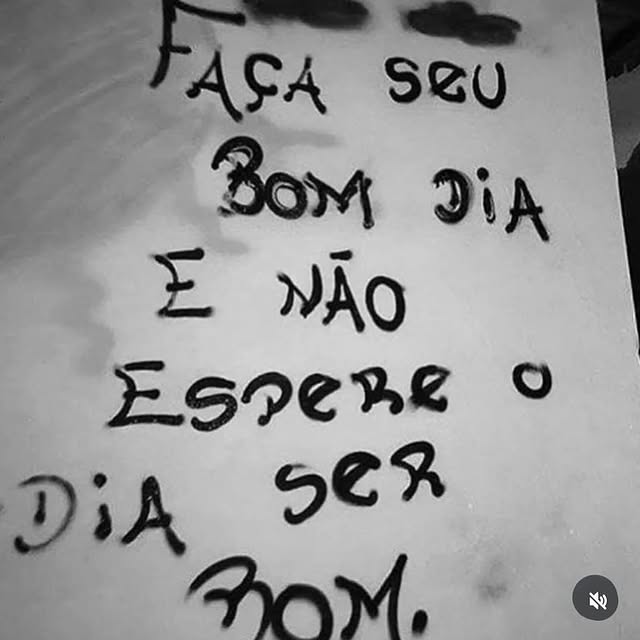 FAÇA SEU
BOM DIA
E NÃO
ESPERE O
DIA SER
BOM.